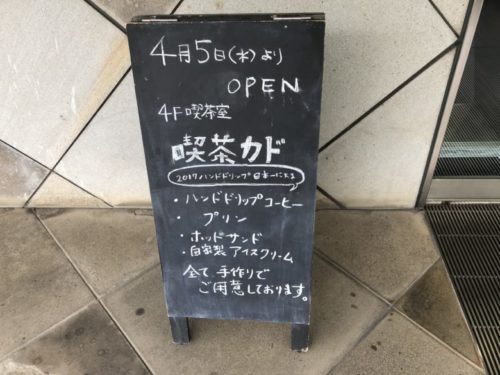 4月5日(水)より
OPEN
4F喫茶室
喫茶カド
2017ハンドドリップ日本一による
・ハンドドリップコーヒー
・プリン
・ホットサンド
・自家製アイスクリーム
全て手作りで
ご用意しております。